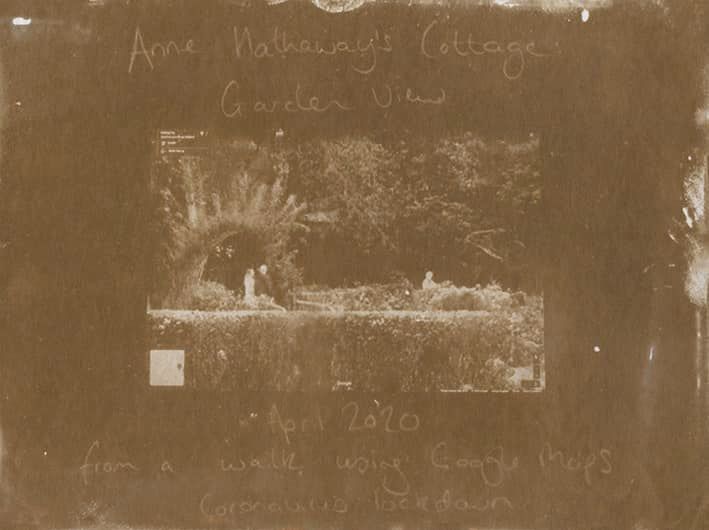 Anne Hathaway's Cottage
Garden View
Google
April 2020
from a walk using Google Maps
Coronavirus lockdown